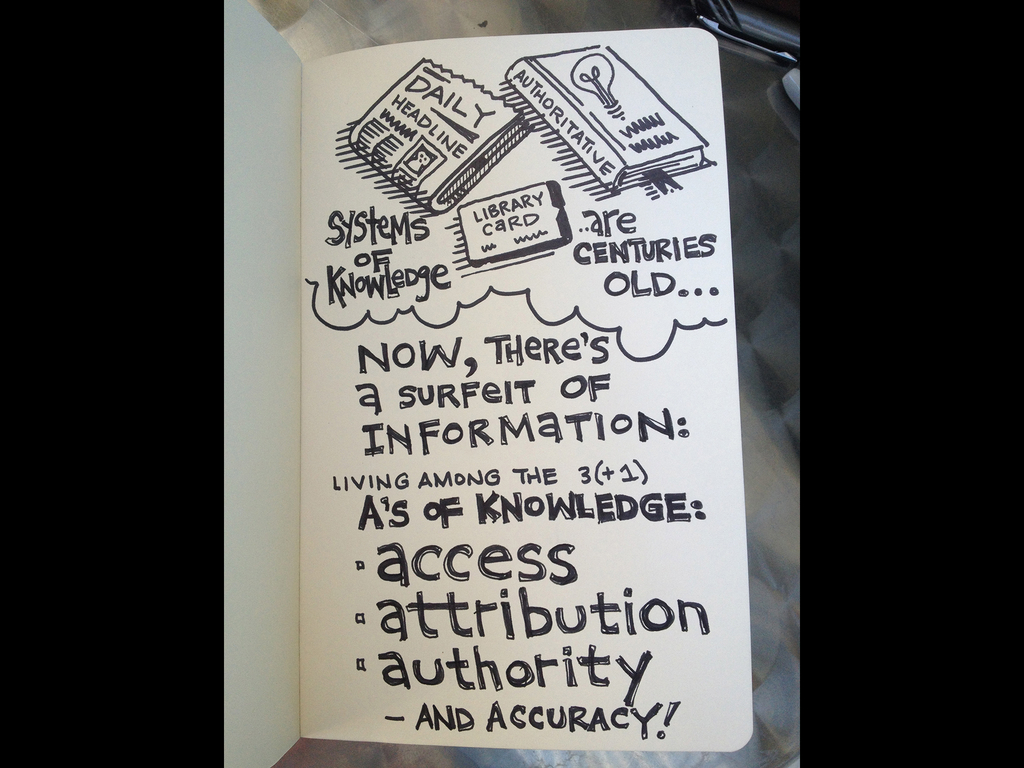 DAILY
HEADLINE
AUTHORITATIVE
LIBRARY
CARD
SYSTEMS
OF
KNOWLEDGE
..are
CENTURIES
OLD...
NOW, THERE'S
a SURFEIT OF
INFORMATION:
LIVING AMONG THE 3(+1)
A'S OF KNOWLEDGE:
▫ access
▫ attribution
▫ authority
— AND ACCURACY!